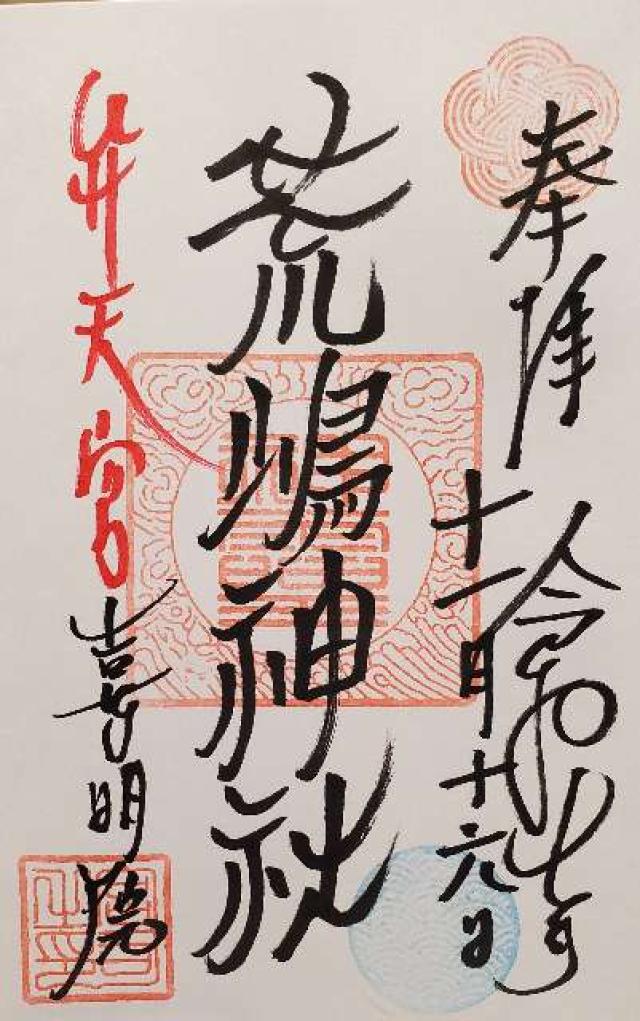 奉拝
令和七年
十一月十六日
荒嶋神社
弁天宮
喜明